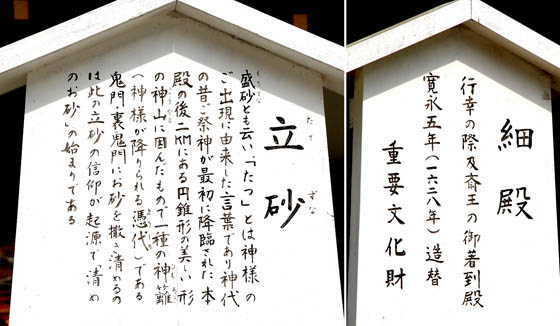 立砂
たてずな
盛砂とも云い「たつ」とは神様の
ご出現に由来した言葉であり神代
の昔ご祭神が最初に降臨された本
殿の後二KMにある円錐形の美しい形
の神山に因んだもので一種の神籬
(神様が降りられる憑代)である
鬼門裏鬼門にお砂を撒き清めるの
は此の立砂の信仰が起源で「清め
のお砂」の始まりである
細殿
行幸の際及斎王の御著到殿
寛永五年(一六二八年)造替
重要文化財